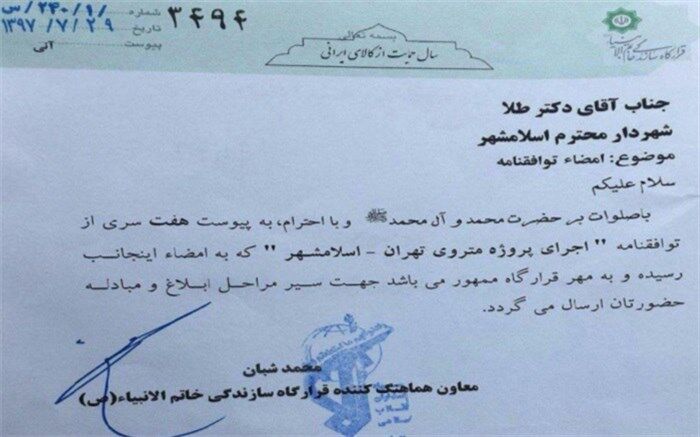 بسمه تعالی
سال حمایت از کالای ایرانی
قرارگاه سازندگی خاتم الانبیاء
شماره ۳۴۹۴ /۲۴۰/۹/س
تاریخ ۱۳۹۷/۷/۲۹
پیوست آنی
جناب آقای دکتر طلا
شهردار محترم اسلامشهر
موضوع: امضاء توافقنامه
سلام علیکم
باصلوات بر حضرت محمد و آل محمدﷺ و با احترام، به پیوست هفت سری از
توافقنامه " اجرای پروژه متروی تهران - اسلامشهر " که به امضاء اینجانب
رسیده و به مهر قرارگاه ممهور می باشد جهت سیر مراحل ابلاغ و مبادله
حضورتان ارسال می گردد.
محمد شبان
معاون هماهنگ کننده قرارگاه سازندگی خاتم الانبیاء(ص)